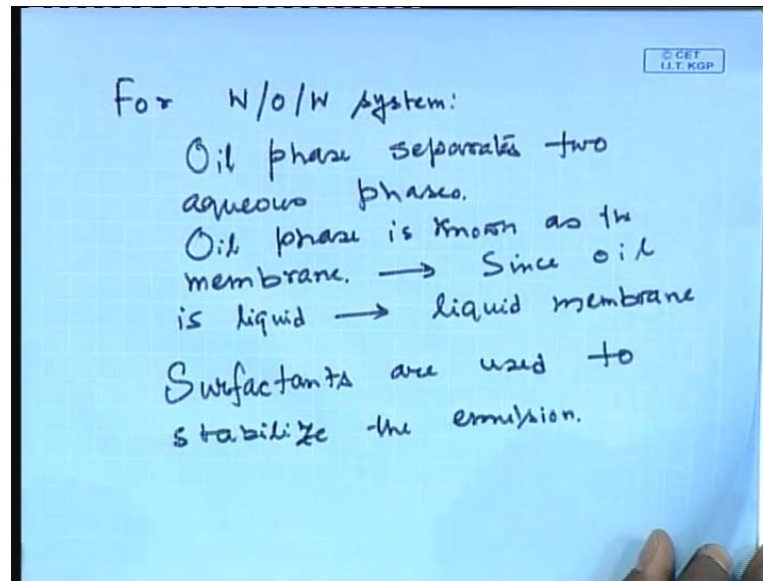 © CET
I.I.T. KGP
For W/O/W system:
Oil phase separates two
aqueous phases.
Oil phase is known as the
membrane. → Since oil
is liquid → liquid membrane
Surfactants are used to
stabilize the emulsion.